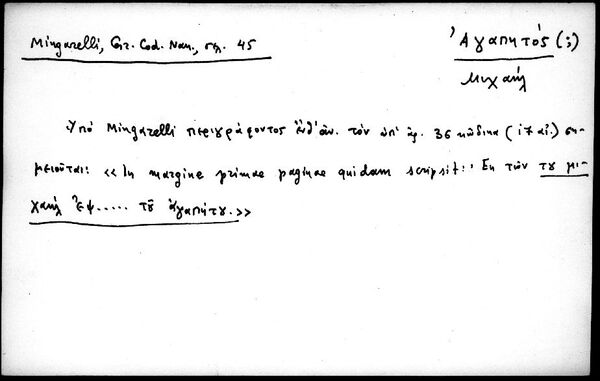 Mingarelli, Gr. Cod. Nan., σελ. 45
Ἀγαπητός (;)
Μιχαήλ
Ὑπό Mingarelli περιγράφοντος ἔνθ' ἀν. τόν ὑπ' ἀρ. 36 κώδικα (ιζ αἰ.) ση-
μειοῦται: «In margine primae paginae quidam scripsit: Ἐκ τῶν τοῦ μι-
χαήλ Ἐψ..... τοῦ ἀγαπήτου.»